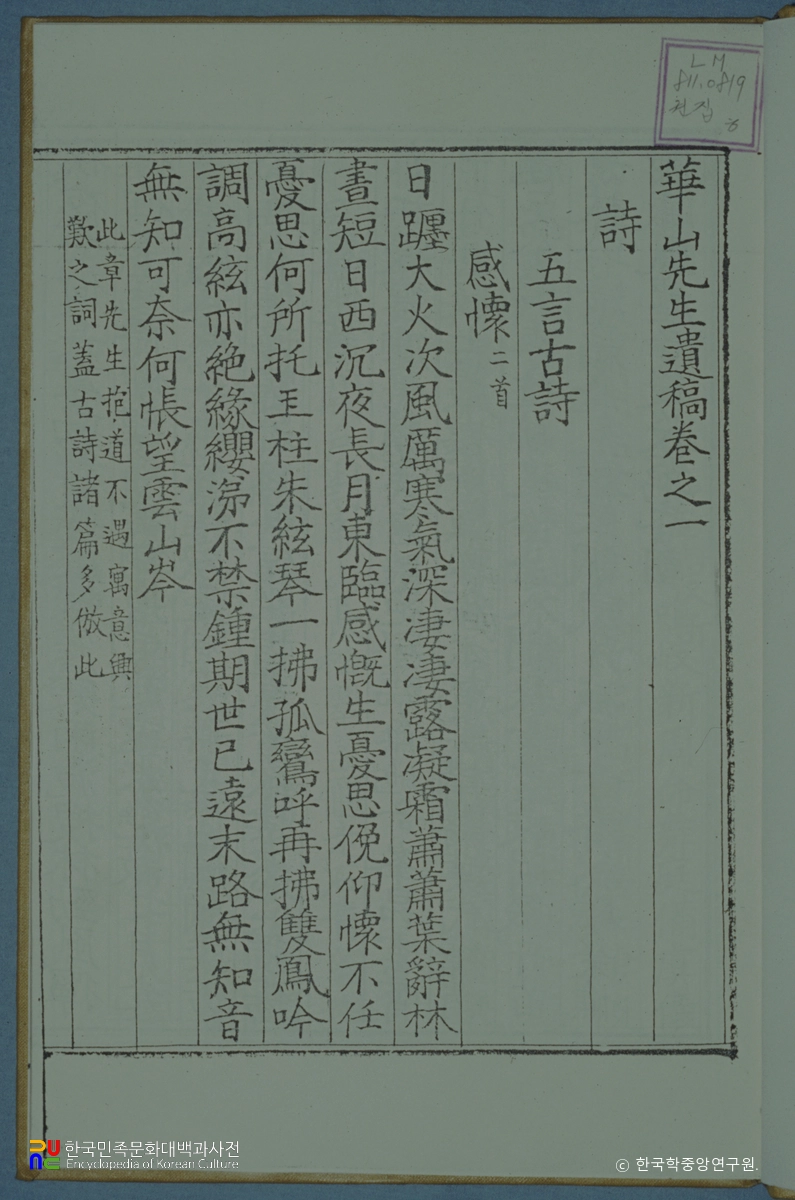 華山先生遺稿卷之一
詩
五言古詩
感懷二首
日躔大火次風厲寒氣深淒淒露凝霜蕭蕭葉辭林
晝短日西沉夜長月東臨感慨生憂思俛仰懷不任
憂思何所托玉柱朱絃琴一拂孤鸞呼再拂雙鳳吟
調高絃亦絶緣纓涕不禁鍾期世已遠末路無知音
無知可奈何悵望雲山岑
此章先生抱道不遇寓意興
歎之詞蓋古詩諸篇多倣此
LM
811.0819
천집
한국민족문화대백과사전
Encyclopedia of Korean Culture
© 한국학중앙연구원.